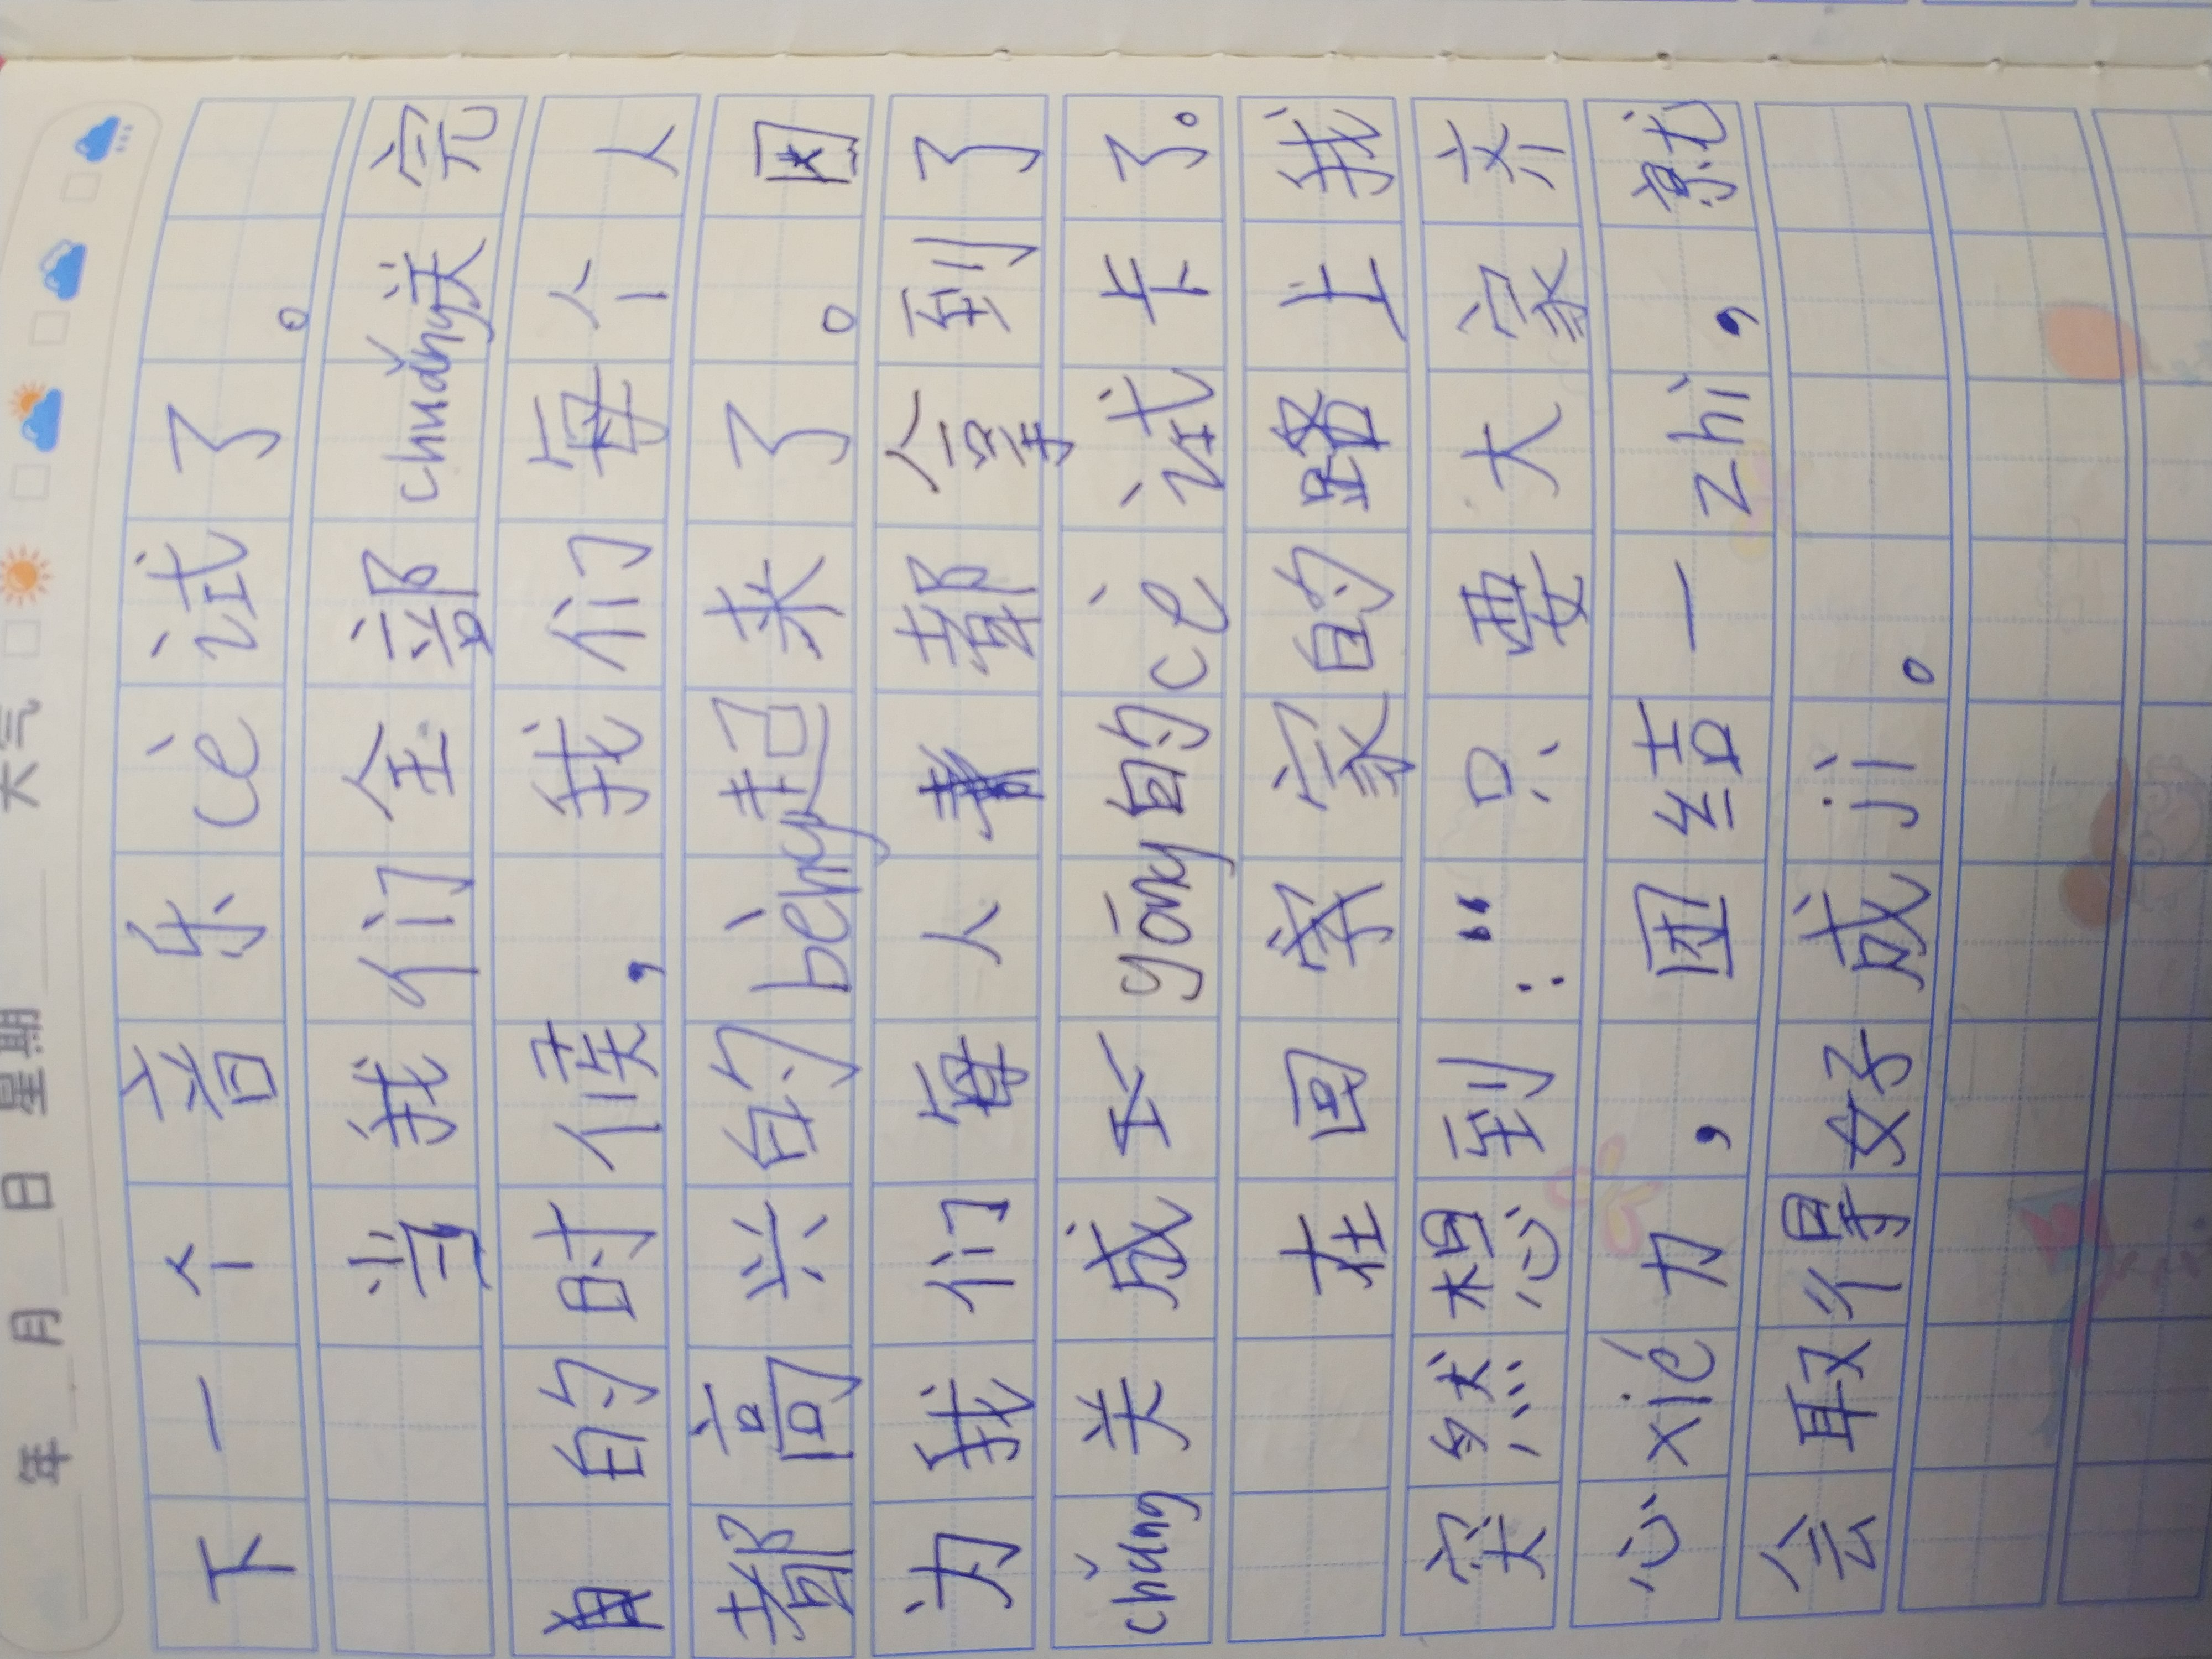 年 月 日 星期 天气
下一个音乐cè试了。
当我们全部chuǎng关完
的时候，我们每个人
都高兴的bèng起来了。因
为我们每人都拿到了
chuǎng关成yǒng的cè试卡了。
在回家的路上我
突然想到：“只要大家齐
心xié力，团结一zhì，就
会取得好成jì。